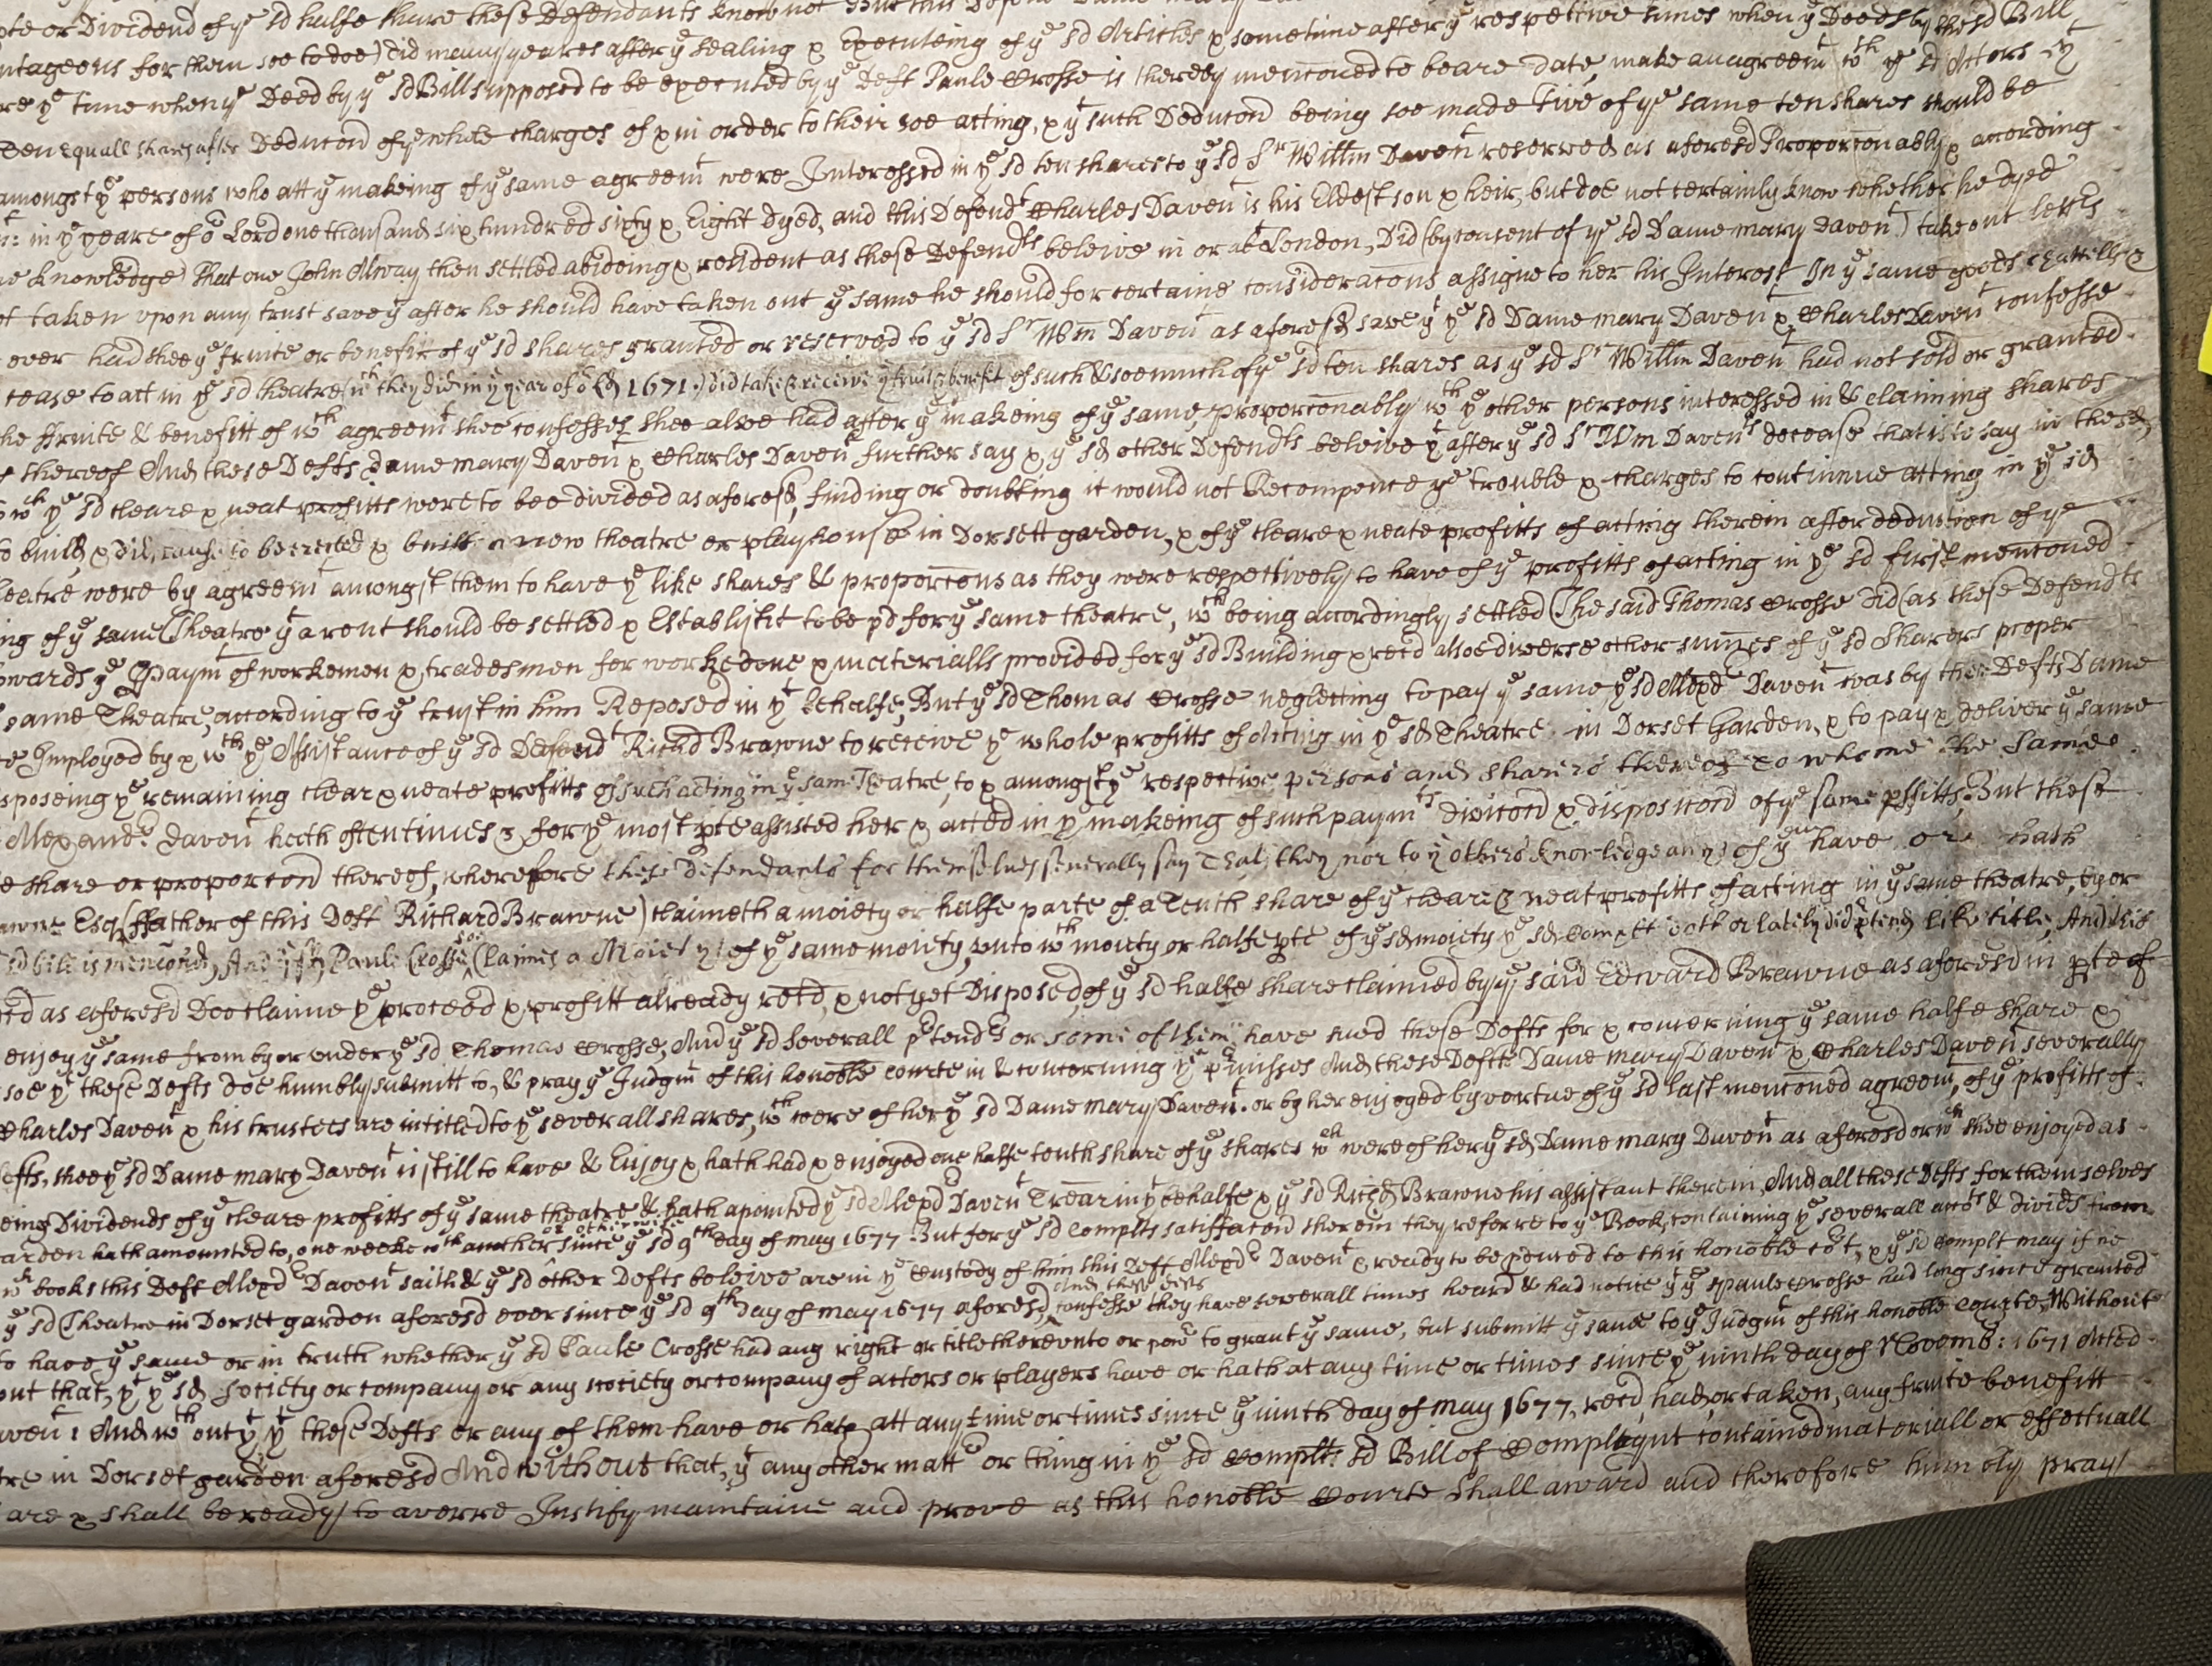 pte or Dividend of ye sd halfe share these Defendants know not But this
ntageous for them soe to doe) did many yeares after ye sealing & Executeing of ye sd Articles & sometime after ye respective times when ye Deeds by the sd Bill
re ye time when ye Deed by ye sd Bill supposed to be executed by ye Deft Paule Crosse is thereby menconed to beare Date, make an agreemt wth ye sd Actors yt
Ten Equall shares after Deducon of ye whole charges of & in order to their soe acting, & yt such Deducon being soe made five of ye same ten shares should be
amongst ye persons who att ye makeing of ye same agreemt were Interessed in ye sd ten shares to ye sd Sr Willm Davent reserved as aforesd Proporconably & according
in ye yeare of or Lord one thousand six hundred sixty & Eight dyed, and this Defendt Charles Davent is his Eldest son & heir, but doe not certainly know whether he dyed
knowledge) that one John Alway then settled abideing & resident as these Defendts beleive in or att London, Did (by consent of ye sd Dame mary Davent) take out lettrs
ot taken upon any trust save yt after he should have taken out ye same he should for certaine consideracons assigne to her his Interest In ye same goods chattells &
ever had shee ye fruite or benefitt of ye sd shares granted or reserved to ye sd Sr Wm Davent as aforesd save yt ye sd Dame mary Davent & Charles Davent confesse
cease to act in ye sd theatre (wch they did in ye year of or Ld 1671) did take & receive ye fruit & benefit of such & soe much of ye sd ten shares as ye sd Sr Willm Davent had not sold or granted
he ffruite & benefitt of wch agreemt shee confesses shee alsoe had after ye makeing of ye same, proporconably wth ye other persons interessed in & claiming shares
thereof And these Defts Dame mary Davent & Charles Davent further say & ye sd other Defendts beleive yt after ye sd Sr Wm Davents decease that is to say in the sd
wch ye sd cleare & neat profitts were to bee divided as aforesd, finding or doubting it would not Recompence ye trouble & charges to continnue acting in ye sd
o build, & did, cause to be erected & built a new theatre or playhouse in Dorsett garden, & of ye cleare & neate profitts of acting therein after deduction of ye
heatre were by agreemt amongst them to have ye like shares & proporcons as they were respectively to have of ye profitts of acting in ye sd first menconed
ing of ye same Theatre yt a rent should be settled & Establisht to be pd for ye same theatre, wch being accordingly settled (The said Thomas Crosse did (as these Defendts
owards ye Paymt of workemen & tradesmen for worke done & materialls provided for ye sd Building & recd alsoe diverse other summes of ye sd Sharers proper
same Theatre, according to ye trust in him Reposed in yt behalfe, But ye sd Thomas Crosse neglecting to pay ye same, ye sd Alexdr Davent was by the Defts Dame
e Imployed by & wth ye Assistance of ye sd Defendt Richd Brawne to receive ye whole profitts of Acting in ye sd Theatre in Dorset Garden, & to pay & deliver ye same
sposeing ye remaining clear & neate profitts of such acting in ye same Theatre, to & amongst ye respective persons and sharers thereof to whome the same
Alexandr Davent hath oftentimes & for ye most pte assisted her & acted in ye makeing of such paymts division & disposicon of ye same pffitts, But these
e share or proporcond thereof, wherefore these defendants for themselves severally say That they nor to ye others knowledge any of ym have or hath
awne Esqr (ffather of this Deft Richard Brawne) claimeth a moiety or halfe parte of a Tenth share of ye cleare & neat profitts of acting in ye same theatre, by or
sd bill is mencond, And ye sd Paule Crosse Claimes a Moiety of ye same moiety, unto wch moiety or halfe pte of ye sd moiety ye sd Complt doth or lately did ptend like title, And this
as aforesd Doe claime ye proceed & profitt already recd, & not yet Disposed, of ye sd halfe share claimed by ye said Edward Brawne as aforesd in pte of
enjoy ye same from by or under ye sd Thomas Crosse, And ye sd severall ptendrs or some of them have sued these Defts for & concerning ye same halfe share &
soe yt these Defts doe humbly submitt to, & pray ye Judgmt of this honoble courte in & concerning ye pmisses And these Defts Dame mary Davent & Charles Davent severally
Charles Davent & his trustees are intitled to ye severall shares, wch were of her ye sd Dame mary Davent or by her enjoyed by vertue of ye sd last menconed agreemt, of ye profitts of
efts, shee ye sd Dame mary Davent is still to have & Enjoy & hath had & enjoyed one halfe tenth share of ye shares wch were of her ye sd Dame mary Davent as aforesd or wch shee enjoyed as
eing Dividends of ye cleare profitts of ye same theatre & hath apointed ye sd Alexdr Davent Trearr in yt behalfe & ye sd Richd Brawne his assistant therein, And all these Defts for themselves
arden hath amounted to, one weeke wth another or otherwise since ye sd 9th day of may 1677 But for ye sd complts satisfaccon therein they referre to ye Book, containing ye severall accots & divids from
wch books this Deft Alexdr Davent saith & ye sd other Defts beleive are in ye Custody of him this Deft Alexdr Davent & ready to be pduced to this honoble cort, & ye sd Complt may if he
ye sd Theatre in Dorset garden aforesd ever since ye sd 9th day of may 1677 aforesd, And these Defts confesse they have severall times heard & had notice yt ye sd Paule Crosse had long since granted
to have ye same or in truth whether ye sd Paule Crosse had any right or title thereunto or powr to grant ye same, but submitt ye same to ye Judgmt of this honoble Courte, Without
out that, yt ye sd society or company or any society or company of actors or players have or hath at any time or times since ye ninth day of Novemb: 1671 Acted
avent: And wthout yt yt these Defts or any of them have or hath att any time or times since ye ninth day of may 1677, recd, had, or taken, any fruite benefitt
tre in Dorset garden aforesd And without that, yt any other mattr or thing in ye sd Complts sd Bill of Complaynt contained materiall or effectuall
are & shall be ready to averre Justify maintaine and prove as this honoble Courte shall award and therefore humbly pray